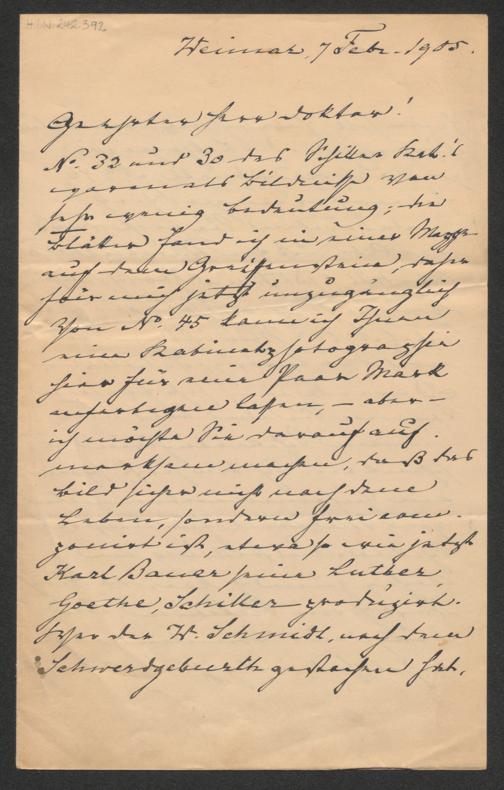 H.I.N. 242.392
Weimar, 7 Febr. 1905.
Geehrter Herr Doktor!
No. 32 und 30 des Schiller Kat.'s
waren als Bildnisse von
sehr wenig Bedeutung; die
Blätter fand ich in einer Mappe
auf dem Greiffenstein, daher
für mich jetzt unzugänglich
Von No. 45 kann ich Ihnen
eine Kabinetphotographie
hier für ein Paar Mark
anfertigen lassen, – aber –
ich möchte Sie darauf auf-
merksam machen, daß das
Bild sicher nicht nach dem
Leben, sondern frei com-
ponirt ist, etwa so wie jetzt
Karl Bauer seine Luther,
Goethe, Schiller produzirt.
der W. Schmidt, nach dem
Schwerdgeburth gestochen hat,